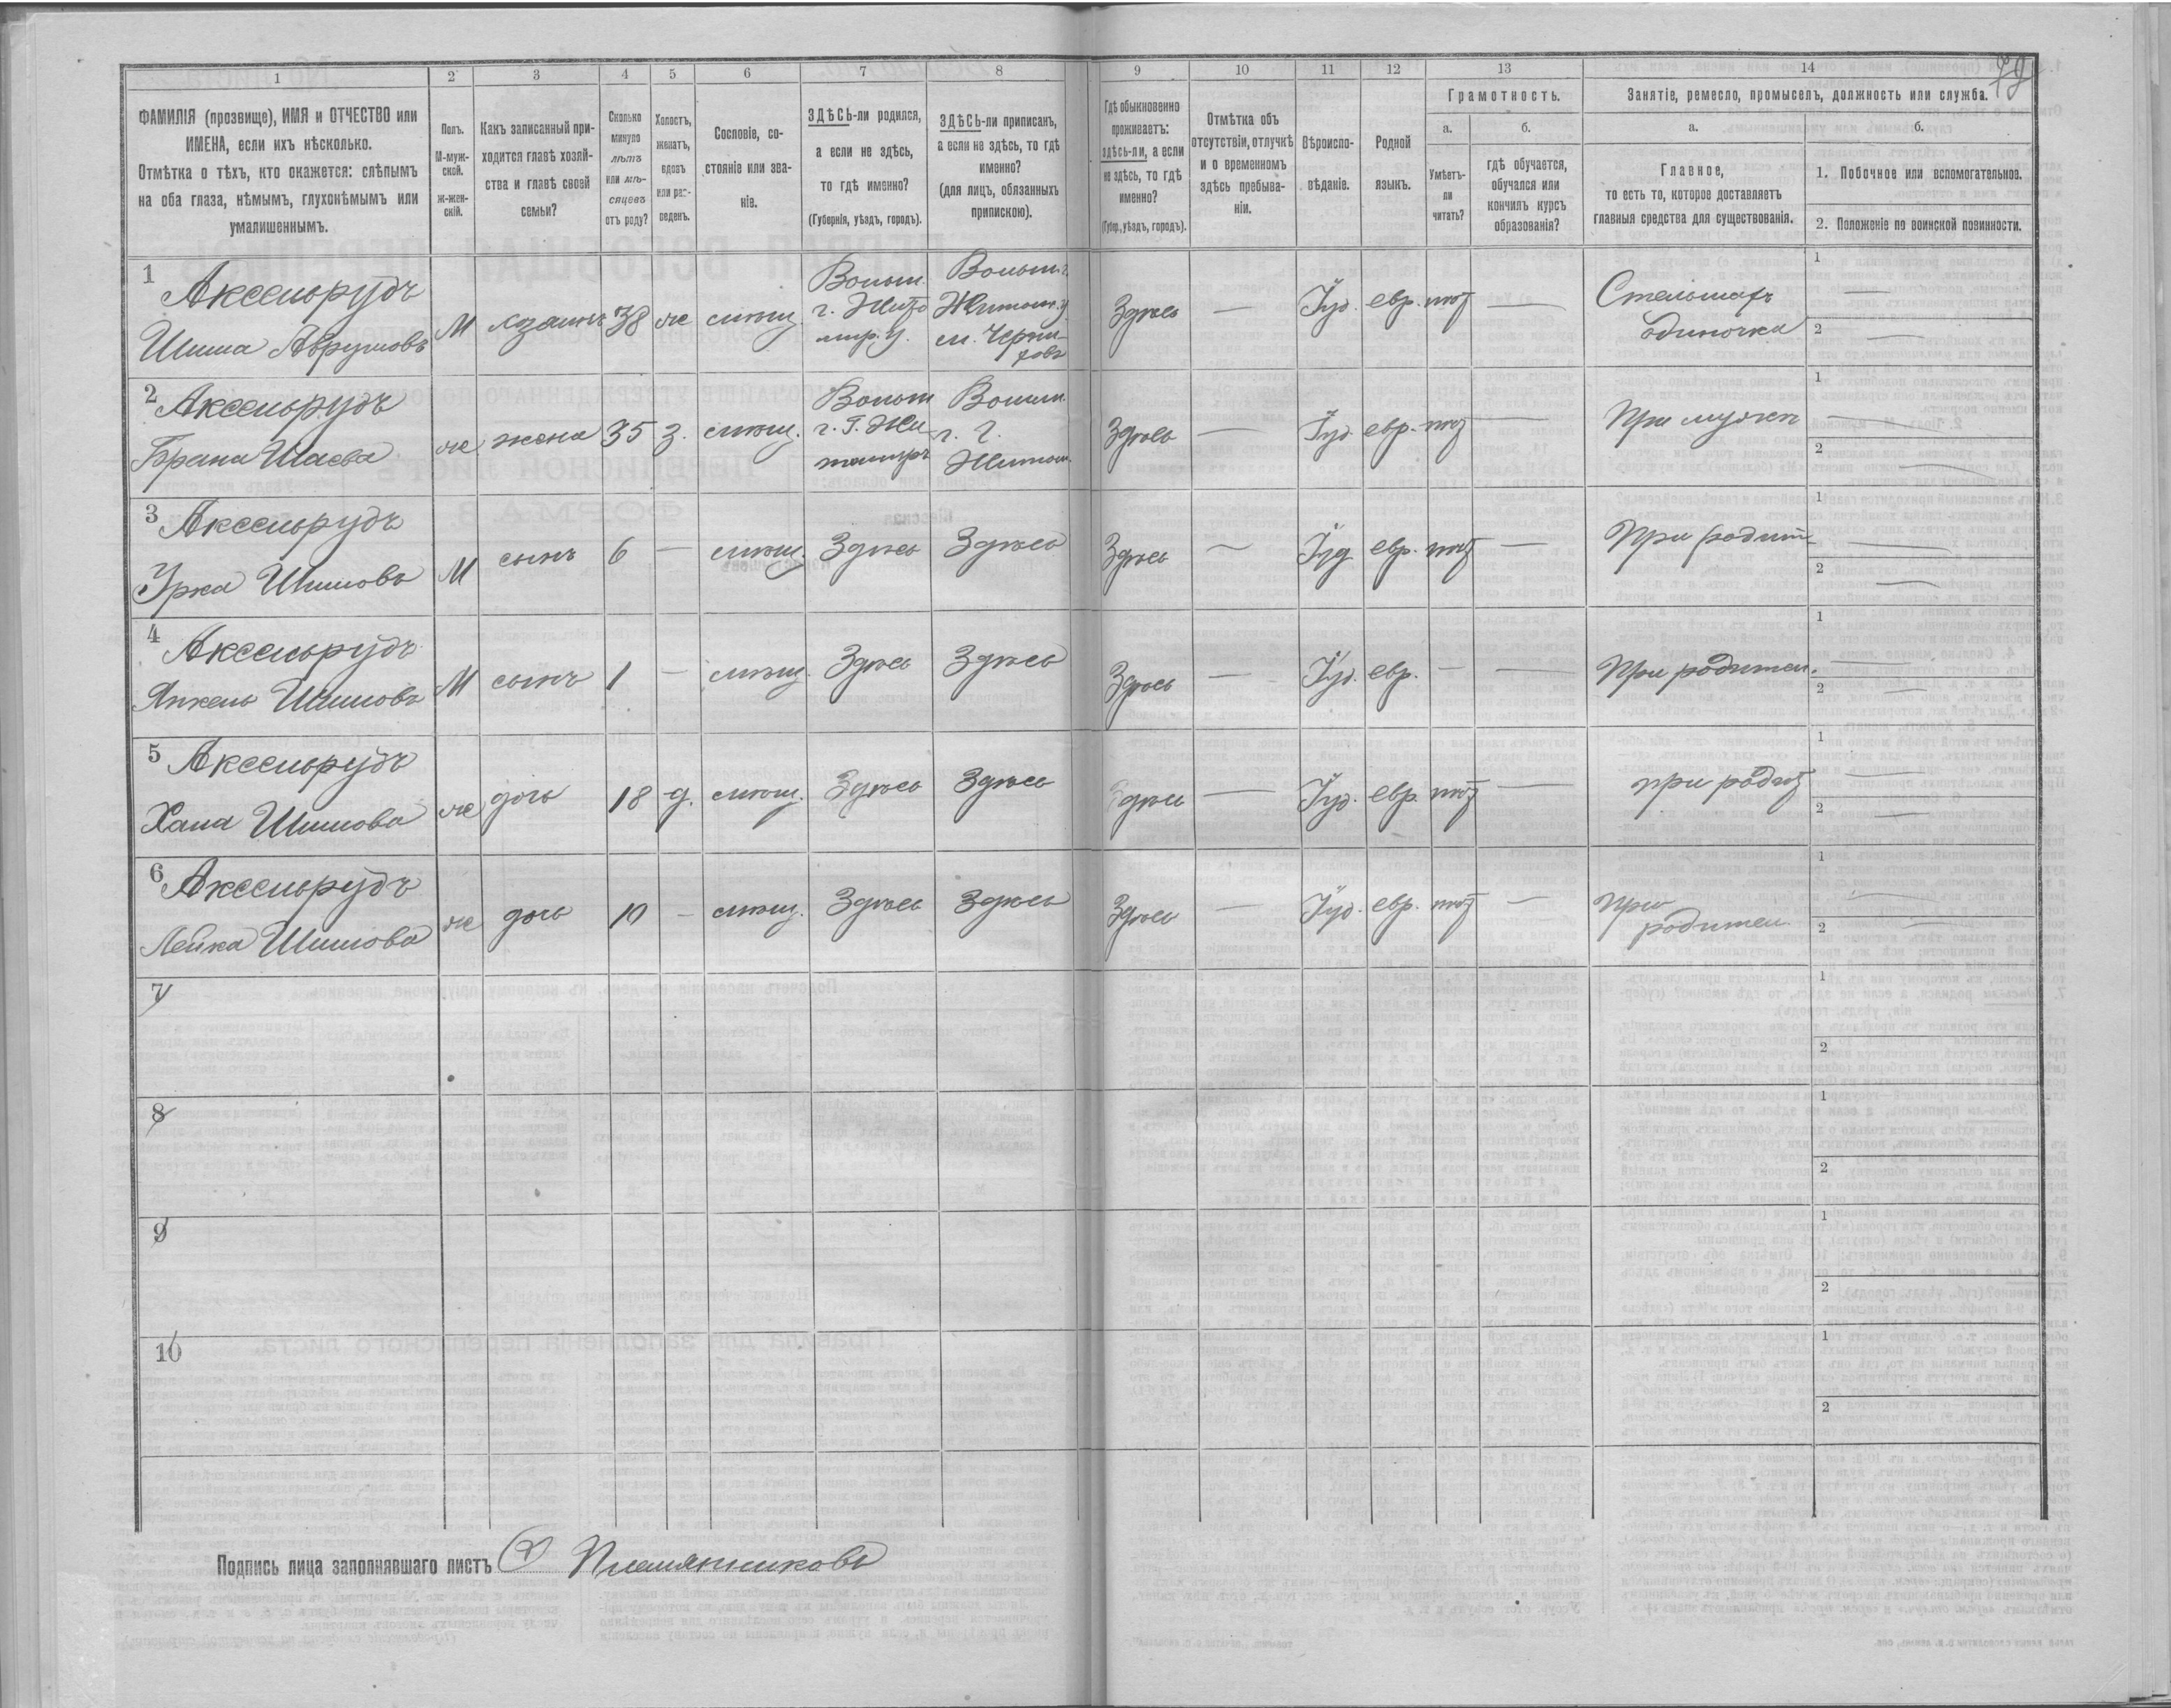 79
1 2 3 4 5 6 7 8 9 10 11 12 13 14
ФАМИЛІЯ (прозвище), ИМЯ и ОТЧЕСТВО или
ИМЕНА, если ихъ нѣсколько.
Отмѣтка о тѣхъ, кто окажется: слѣпымъ
на оба глаза, нѣмымъ, глухонѣмымъ или
умалишеннымъ.
Полъ.
М-муж-
ской.
Ж-жен-
скій.
Какъ записанный при-
ходится главѣ хозяй-
ства и главѣ своей
семьи?
Сколько
минуло
лѣтъ
или мѣ-
сяцевъ
отъ роду?
Холостъ,
женатъ,
вдовъ
или раз-
веденъ.
Сословіе, со-
стояніе или зва-
ніе.
ЗДѢСЬ-ли родился,
а если не здѣсь,
то гдѣ именно?
(Губернія, уѣздъ, городъ).
ЗДѢСЬ-ли приписанъ,
а если не здѣсь, то гдѣ
именно?
(для лицъ, обязанныхъ
припискою).
Гдѣ обыкновенно
проживаетъ:
здѣсь-ли, а если
не здѣсь, то гдѣ
именно?
(Губер., уѣздъ, городъ).
Отмѣтка объ
отсутствіи, отлучкѣ
и о временномъ
здѣсь пребыва-
ніи.
Вѣроиспо-
вѣданіе.
Родной
языкъ.
Грамотность.
а.
Умѣетъ-
ли
читать?
б.
гдѣ обучается,
обучался или
кончилъ курсъ
образованія?
Занятіе, ремесло, промыселъ, должность или служба.
а.
Главное,
то есть то, которое доставляетъ
главныя средства для существованія.
б.
1. Побочное или вспомогательное.
2. Положеніе по воинской повинности.
1
Аксельрудъ
Шима Аврумовъ
М
хозяинъ
38
же
мѣщ.
Волын.
г. Жито
мир. у.
Волын. г.
Житом. у.
м. Черня-
ховъ
Здѣсь
—
Іуд.
евр.
—
Стельмахъ
одиночка
1 —
2 —
2
Аксельрудъ
Брана Шаева
же
жена
35
з.
мѣщ.
Волын
г. Г. Жи-
томиръ
Волын.
г. г.
Житом.
Здѣсь
—
Іуд.
евр.
—
При мужѣ
1 —
2 —
3
Аксельрудъ
Урка Шимовъ
М
сынъ
6
—
мѣщ.
Здѣсь
Здѣсь
Здѣсь
—
Іуд
евр.
—
При родит
1 —
2 —
4
Аксельрудъ
Янкель Шимовъ
М
сынъ
1
—
мѣщ.
Здѣсь
Здѣсь
Здѣсь
—
Іуд.
евр.
—
—
При родител.
1 —
2 —
5
Аксельрудъ
Хана Шимова
же
дочь
18
д.
мѣщ.
Здѣсь
Здѣсь
Здѣсь
—
Іуд.
евр.
—
при родит
1 —
2 —
6
Аксельрудъ
Лейка Шимова
же
дочь
10
—
мѣщ.
Здѣсь
Здѣсь
Здѣсь
—
Іуд.
евр.
—
При
родител.
1 —
2 —
7
1
2
8
1
2
9
1
2
10
1
2
Подпись лица заполнявшаго листъ Племянниковъ